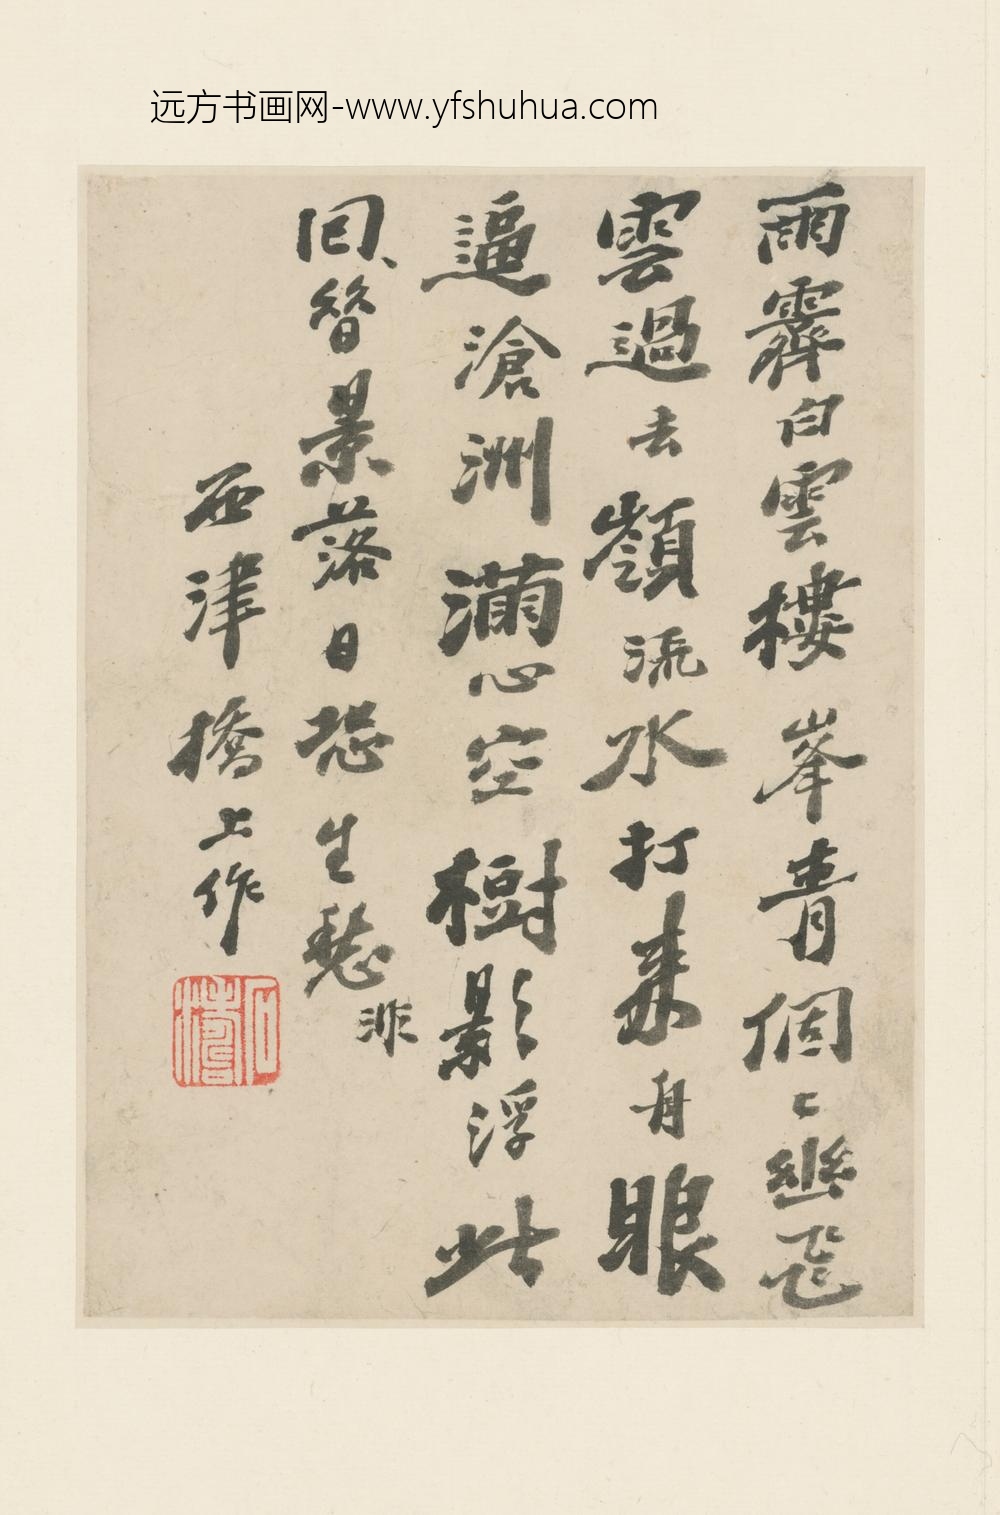 远方书画网-www.yfshuhua.com
雨霽白雲樓峯青個〻幽飛
雲過去嶺流水打來舟眼
逼滄洲滿心空樹影浮此
回暫景落日恐生愁 非
西津橋上作
石濤